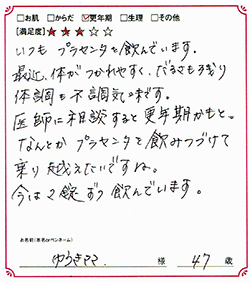 □お肌 □からだ ☑更年期 □生理 □その他
[満足度]★★★☆☆
いつも プラセンタを飲んでいます。
最近、体がつかれやすく、だるさも残り
体調も不調気味です。
医師に相談すると更年期かもと。
なんとか プラセンタを飲みつづけて
乗り越えたいですね。
今は2錠ずつ飲んでいます。
お名前(本名orペンネーム)
ゆうきママ 様 47歳